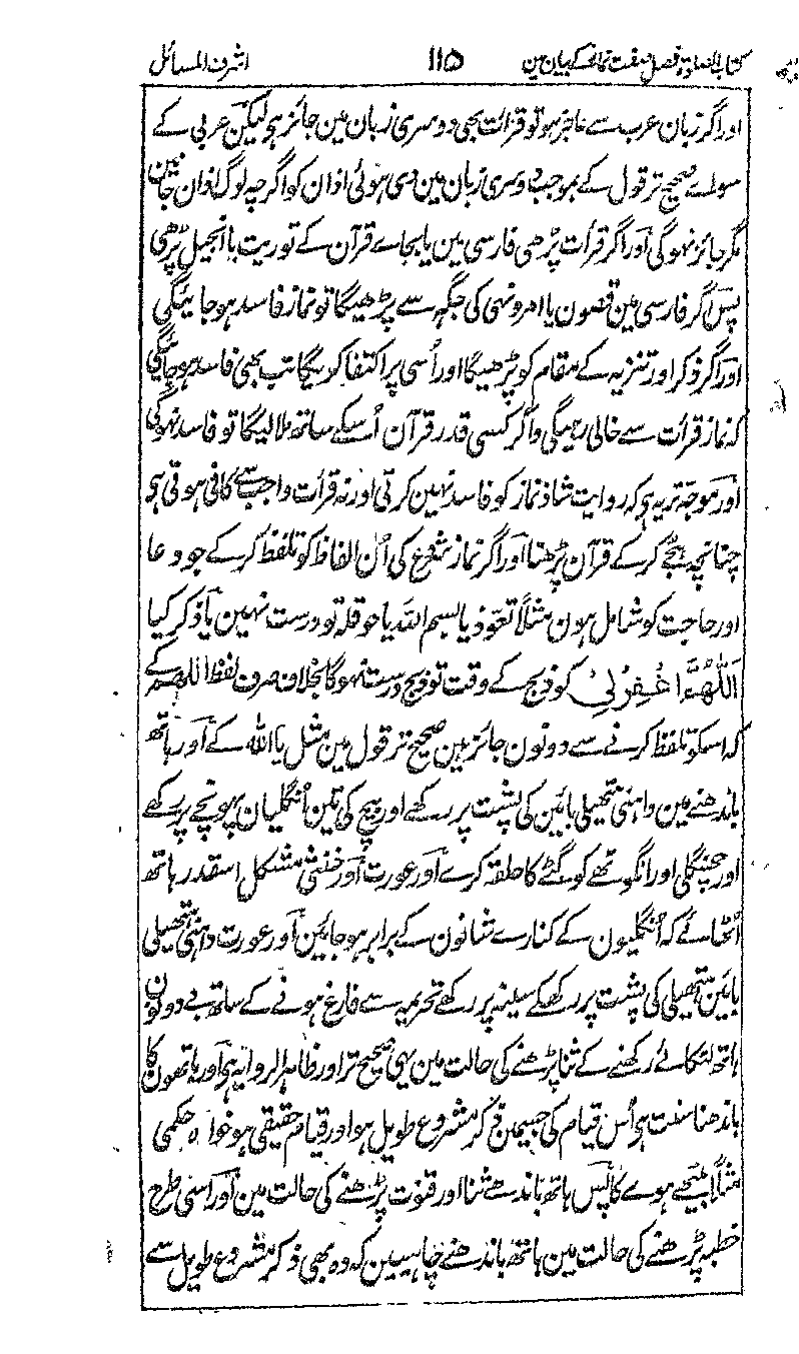 کتاب الصلوۃ فصل صفت نماز کے بیان مین ۱۱۵ اشرف المسائل
اور اگر زبان عرب سے عاجز ہو تو قرأت بھی دوسری زبان مین جائز ہی لیکن عربی کے
سواے صحیح تر قول کے بموجب دوسری زبان مین دی ہوئی اذان کو اگرچہ لوگ اذان جانین
مگر جائز نہوگی اور اگر قرأت پڑھی فارسی مین یا بجاے قرآن کے توریت یا انجیل پڑھی
پس اگر فارسی مین قصون یا امر و نہی کی جگہ سے پڑھیگا تو نماز فاسد ہو جائیگی
اور اگر ذکر اور تنزیہ کے مقام کو پڑھیگا اور اُسی پر اکتفا کریگا تب بھی فاسد ہو جائیگی
کہ نماز قرأت سے خالی رہیگی و اگر کسی قدر قرآن اُسکے ساتھ ملا لیگا تو فاسد نہوگی
اور موجہ تر یہ ہی کہ روایت شاذ نماز کو فاسد نہین کرتی اور نہ قرأت واجب سے کافی ہوتی ہی
چنانچہ ہجے کرکے قرآن پڑھنا اور اگر نماز شروع کی اُن الفاظ کو تلفظ کرکے جو دعا
اور حاجت کو شامل ہون مثلاً تعوذ یا بسم اللہ یا حوقلہ تو درست نہین یا ذکر کیا
اَللّٰهُمَّ اغْفِرْ لِیْ کو ذبح کے وقت تو ذبح درست نہوگا بخلاف صرف لفظ اللہم کے
کہ اسکو تلفظ کرنے سے دونون جائز ہین صحیح تر قول مین مثل یا اللہ کے اور ہاتھ
باندھنے مین داہنی ہتھیلی بائین کی پشت پر رکھے اور بیچ کی تین اُنگلیان پہونچے پر رکھے
اور چھنگلی اور انگوٹھے کو گٹے کا حلقہ کرے اور عورت اور خنثی مشکل اسقدر ہاتھ
اُٹھائے کہ اُنگلیون کے کنارے شانون کے برابر ہو جائین اور عورت داہنی ہتھیلی
بائین ہتھیلی کی پشت پر رکھکے سینہ پر رکھے تحریمہ سے فارغ ہونے کے ساتھ بے دونون
ہاتھ لٹکائے رکھنے کے ثنا پڑھنے کی حالت مین یہی صحیح تر اور ظاہر الروایہ ہی اور ہاتھون کا
باندھنا سنت ہو اُس قیام کی جسمین ذکر مشروع طویل ہو اور قیام حقیقی ہو خواہ حکمی
مثلاً بیٹھے ہوے کا پس ہاتھ باندھے ثنا اور قنوت پڑھنے کی حالت مین اور اسی طرح
خطبہ پڑھنے کی حالت مین ہاتھ باندھنے چاہیین کہ وہ بھی ذکر مشروع طویل سے